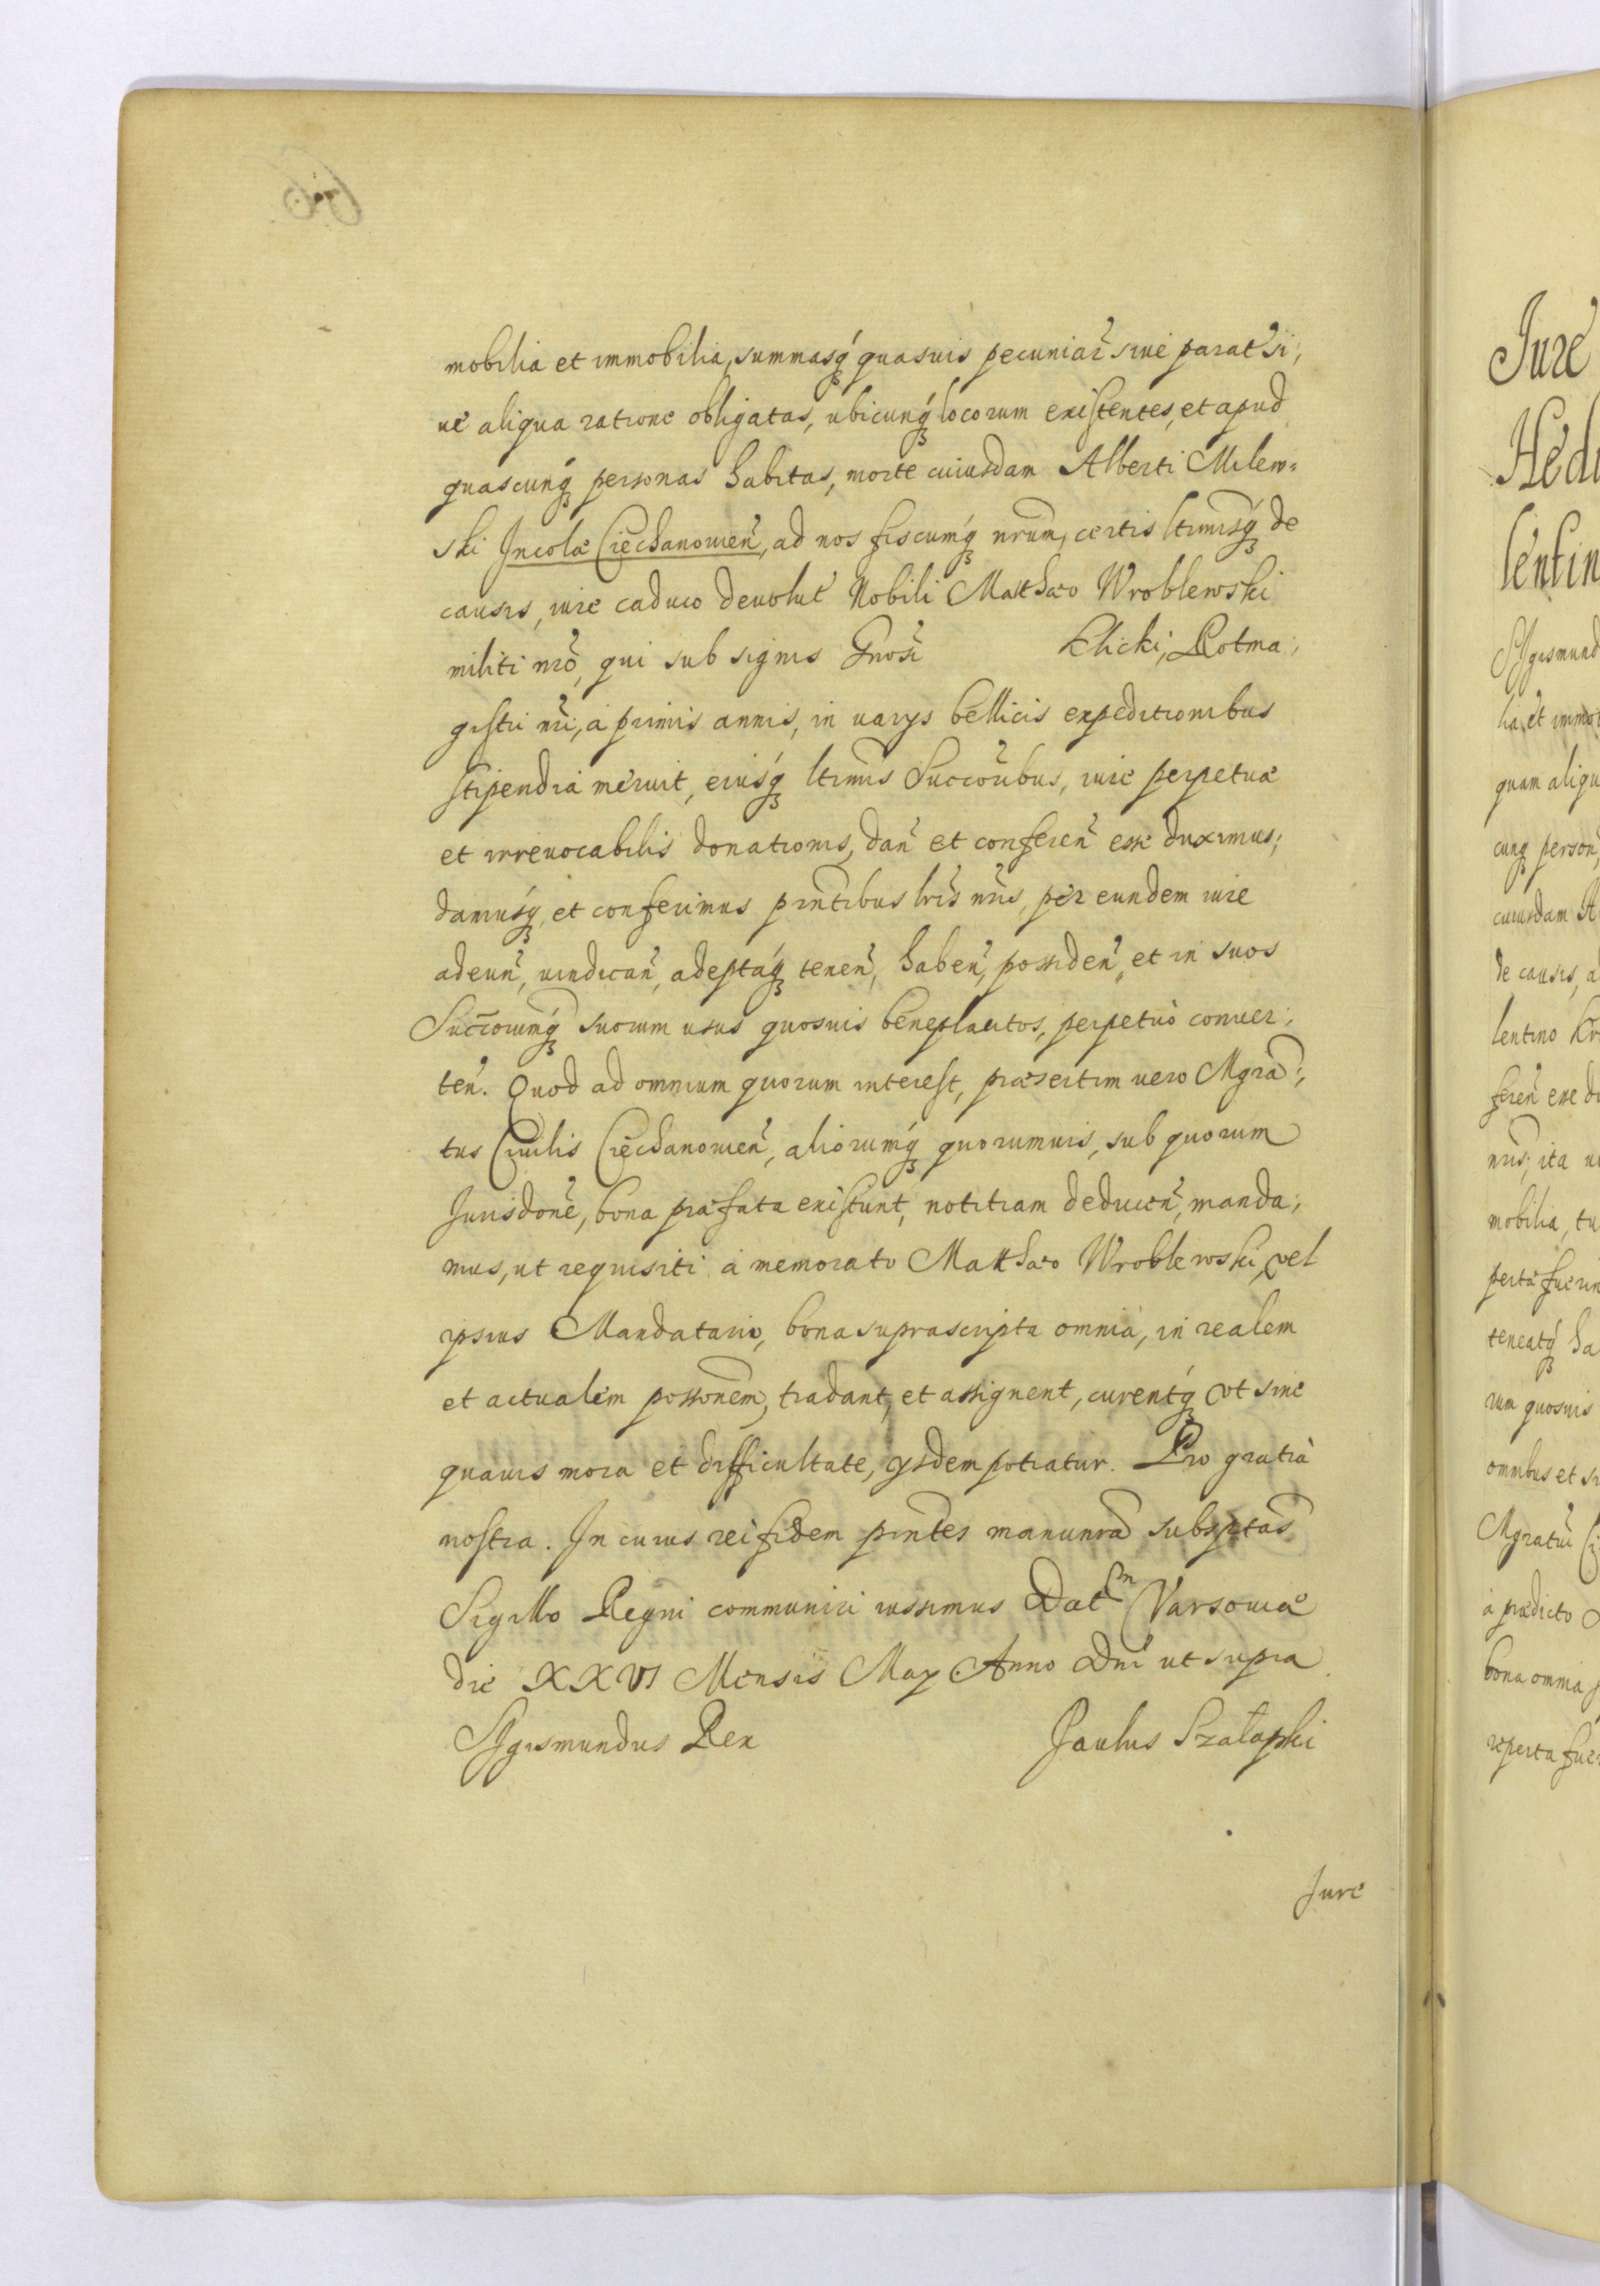 mobilia et immobilia, summasq́ꝫ quasuis pecuniar̃ siue parat̃ si,
ue aliqua ratione obligatas, ubicunq́ꝫ locorum existentes, et apud
quascunq́ꝫ personas habitas, morte cuiusdam Alberti Milew=
ski Incolæ Ciechanouien̄, ad nos fiscumq́ꝫ nrum, certis ltimisq́ꝫ de
causis, iure caduco deuolut̃ Nobili Matthæo Wroblewski
militi nrõ, qui sub signis Gnosi Klicki, Rotma,
gistri nri, à primis annis, in varys bellicis expeditionibus
stipendia meruit, eiusq́ꝫ ltimis Succoribus, iure perpetuæ
et irreuocabilis donationis, dan̄ et conferen̄ esse duximus;
damusq́ꝫ, et conferimus pn̄tibus lris nris, per eundem iure
adeun̄, uindican̄, adeptaq́ꝫ tenen̄, haben̄, possiden̄, et in suos
Succorumq́ꝫ suorum usus quosuis beneplacitos, perpetuò conuer,
ten̄. Quod ad omnium quorum interest, præsertim uero Mgra,
tus Ciuilis Ciechanouien̄, aliorumq́ꝫ quorumuis, sub quorum
Jurisdone, bona præfata existunt, notitiam deducen̄, manda,
mus, ut requisiti à memorato Matthæo Wroblewski, vel
ipsius Mandatario, bona suprascripta omnia, in realem
et actualem possonem, tradant, et assignent, curentq́ꝫ vt sine
quauis mora et difficultate, ysdem potiatur. Pro gratia
nostra. In cuius rei fidem pn̄tes manu nra subsptas
Sigillo Regni communiri iussimus Datm Varsouiæ
die XXVI Mensis May Anno Dni ut supra
Sgismundus Rex Paulus Szałapski
Jure
Jure
Hedu
lentin
Sgismund
lia, et immob
quam aliqu
cunqꝫ person
cuiusdam A
de causis, a
lentino Kr
feren̄ esse du
nris, ita u
mobilia, tu
perta fuerin
teneatqꝫ ha
rum quosuis
omnibus et si
Mgratui Ci
à prædicto
bona omnia
reperta fue